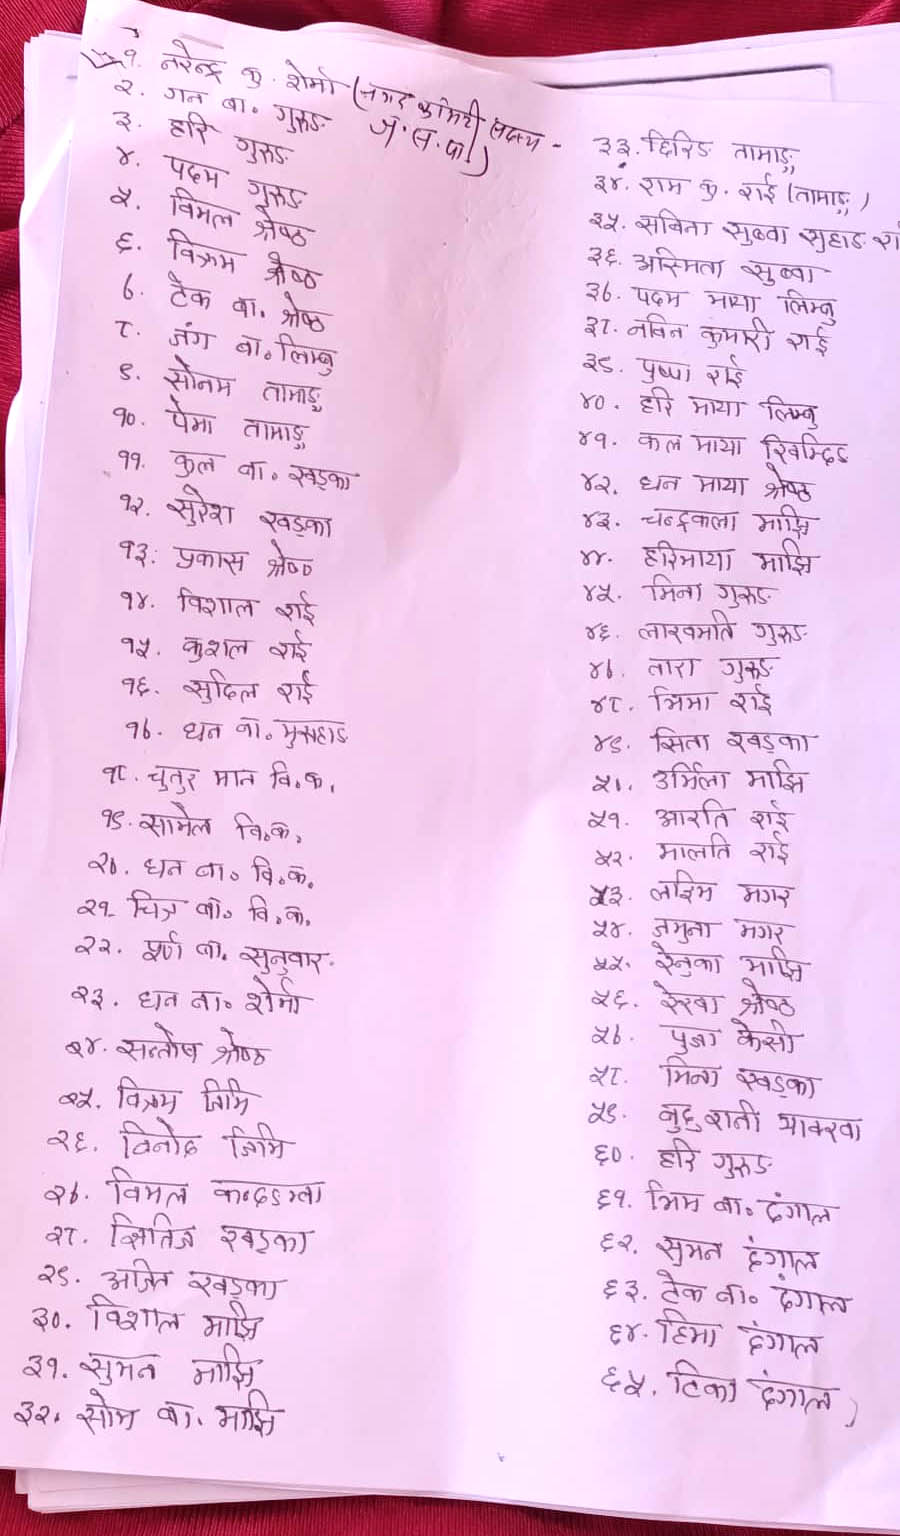 १. नरेन्द्र कु. शेर्मा (नगर कमिटी सदस्य - ज.स.पा)
२. गन बा. गुरुङ
३. हरि गुरुङ
४. पदम गुरुङ
५. विमल श्रेष्ठ
६. विक्रम श्रेष्ठ
७. टेक बा. श्रेष्ठ
८. जंग बा. लिम्बु
९. सोनम तामाङ्ग
१०. पेमा तामाङ्ग
११. कुल बा. खड्का
१२. सुरेश खड्का
१३. प्रकास श्रेष्ठ
१४. विशाल राई
१५. कुशल राई
१६. सुदिल राई
१७. धन बा.
१८. चुतुर मान वि.क.
१९. सामेल वि.क.
२०. धन बा. वि.क.
२१. चित्र बा. वि.क.
२२. पूर्ण बा. सुनुवार
२३. धन बा. शेर्मा
२४. सन्तोष श्रेष्ठ
२५. विक्रम जिमि
२६. विनोद जिमि
२७. विमल
२८. क्षितिज खड्का
२९. अजित खड्का
३०. विशाल माझि
३१. सुमन माझि
३२. सोम बा. माझि
३३. छिरिङ तामाङ्ग
३४. राम कु. राई (तामाङ्ग)
३५. सबिना सुब्बा सुहाङ
३६. अस्मिता सुब्बा
३७. पदम माया लिम्बु
३८. नविन कुमारी राई
३९. पुष्पा राई
४०. हरि माया लिम्बु
४१. कल माया
४२. धन माया श्रेष्ठ
४३. चन्द्रकला माझि
४४. हरिमाया माझि
४५. मिना गुरुङ
४६. लाखमति गुरुङ
४७. तारा गुरुङ
४८. भिमा राई
४९. सिता खड्का
५०. उर्मिला माझि
५१. आरति राई
५२. मालति राई
५३. लक्ष्मि मगर
५४. जमुना मगर
५५. रेनुका माझि
५६. रेखा श्रेष्ठ
५७. पुजा केसी
५८. मिना खड्का
५९. याक्खा
६०. हरि गुरुङ
६१. भिम बा. दंगाल
६२. सुमन दंगाल
६३. टेक बा. दंगाल
६४. हिमा दंगाल
६५. टिका दंगाल